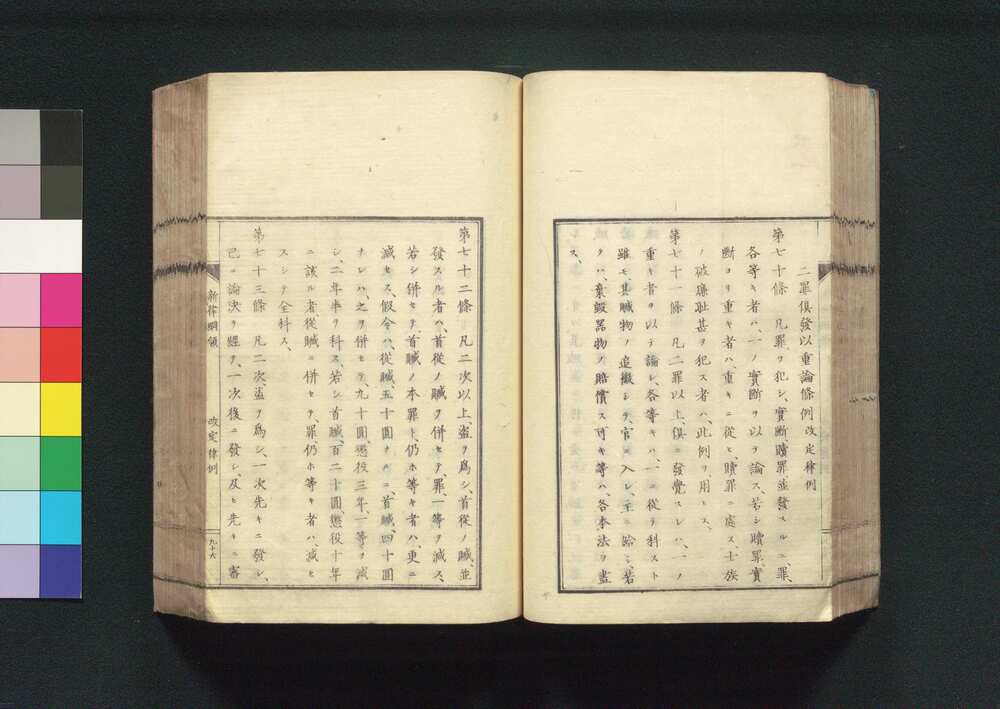 二罪俱發以重論條例改定律例
第七十條　凡罪ヲ犯シ、實斷、贖罪並發スルニ、罪、
各等キ者ハ、一ノ實斷ヲ以テ論ス、若シ贖罪、實
斷ヨリ重キ者ハ、重キニ從ヒ、贖罪ニ處ス、士族
ノ破廉耻甚ヲ犯ス者ハ、此例ヲ用ヒス、
第七十一條　凡二罪以上、俱ニ發覺スレハ、一ノ
重キ者ヲ以テ論シ、各等キハ、一ニ從テ科スト
雖モ其贓物ノ追徵シテ、官ニ入レ、主ニ給シ、若
クハ、棄毀器物ノ賠償ス可キ等ハ、各本法ヲ盡
ス、
第七十二條　凡二次以上、盜ヲ爲シ、首從ノ贓、並
發スル者ハ、首從ノ贓ヲ併セテ、罪一等ヲ減ス、
若シ併セテ、首贓ノ本罪ト、仍ホ等キ者ハ更ニ
減セス、假令ハ、從贓、五十圓ナルニ、首贓、四十圓
ナレハ、之ヲ併セテ、九十圓、懲役三年、一等ヲ減
シ、二年半ヲ科ス、若シ首贓、百二十圓、懲役十年
ニ該ル者、從贓ニ併セテ、罪、仍ホ等キ者ハ、減セ
スシテ全科ス、
第七十三條　凡二次盜ヲ爲シ、一次先キニ發シ、
已ニ論決ヲ經テ、一次後ニ發シ、及ヒ先キニ審
新律綱領　改定律例　九十六